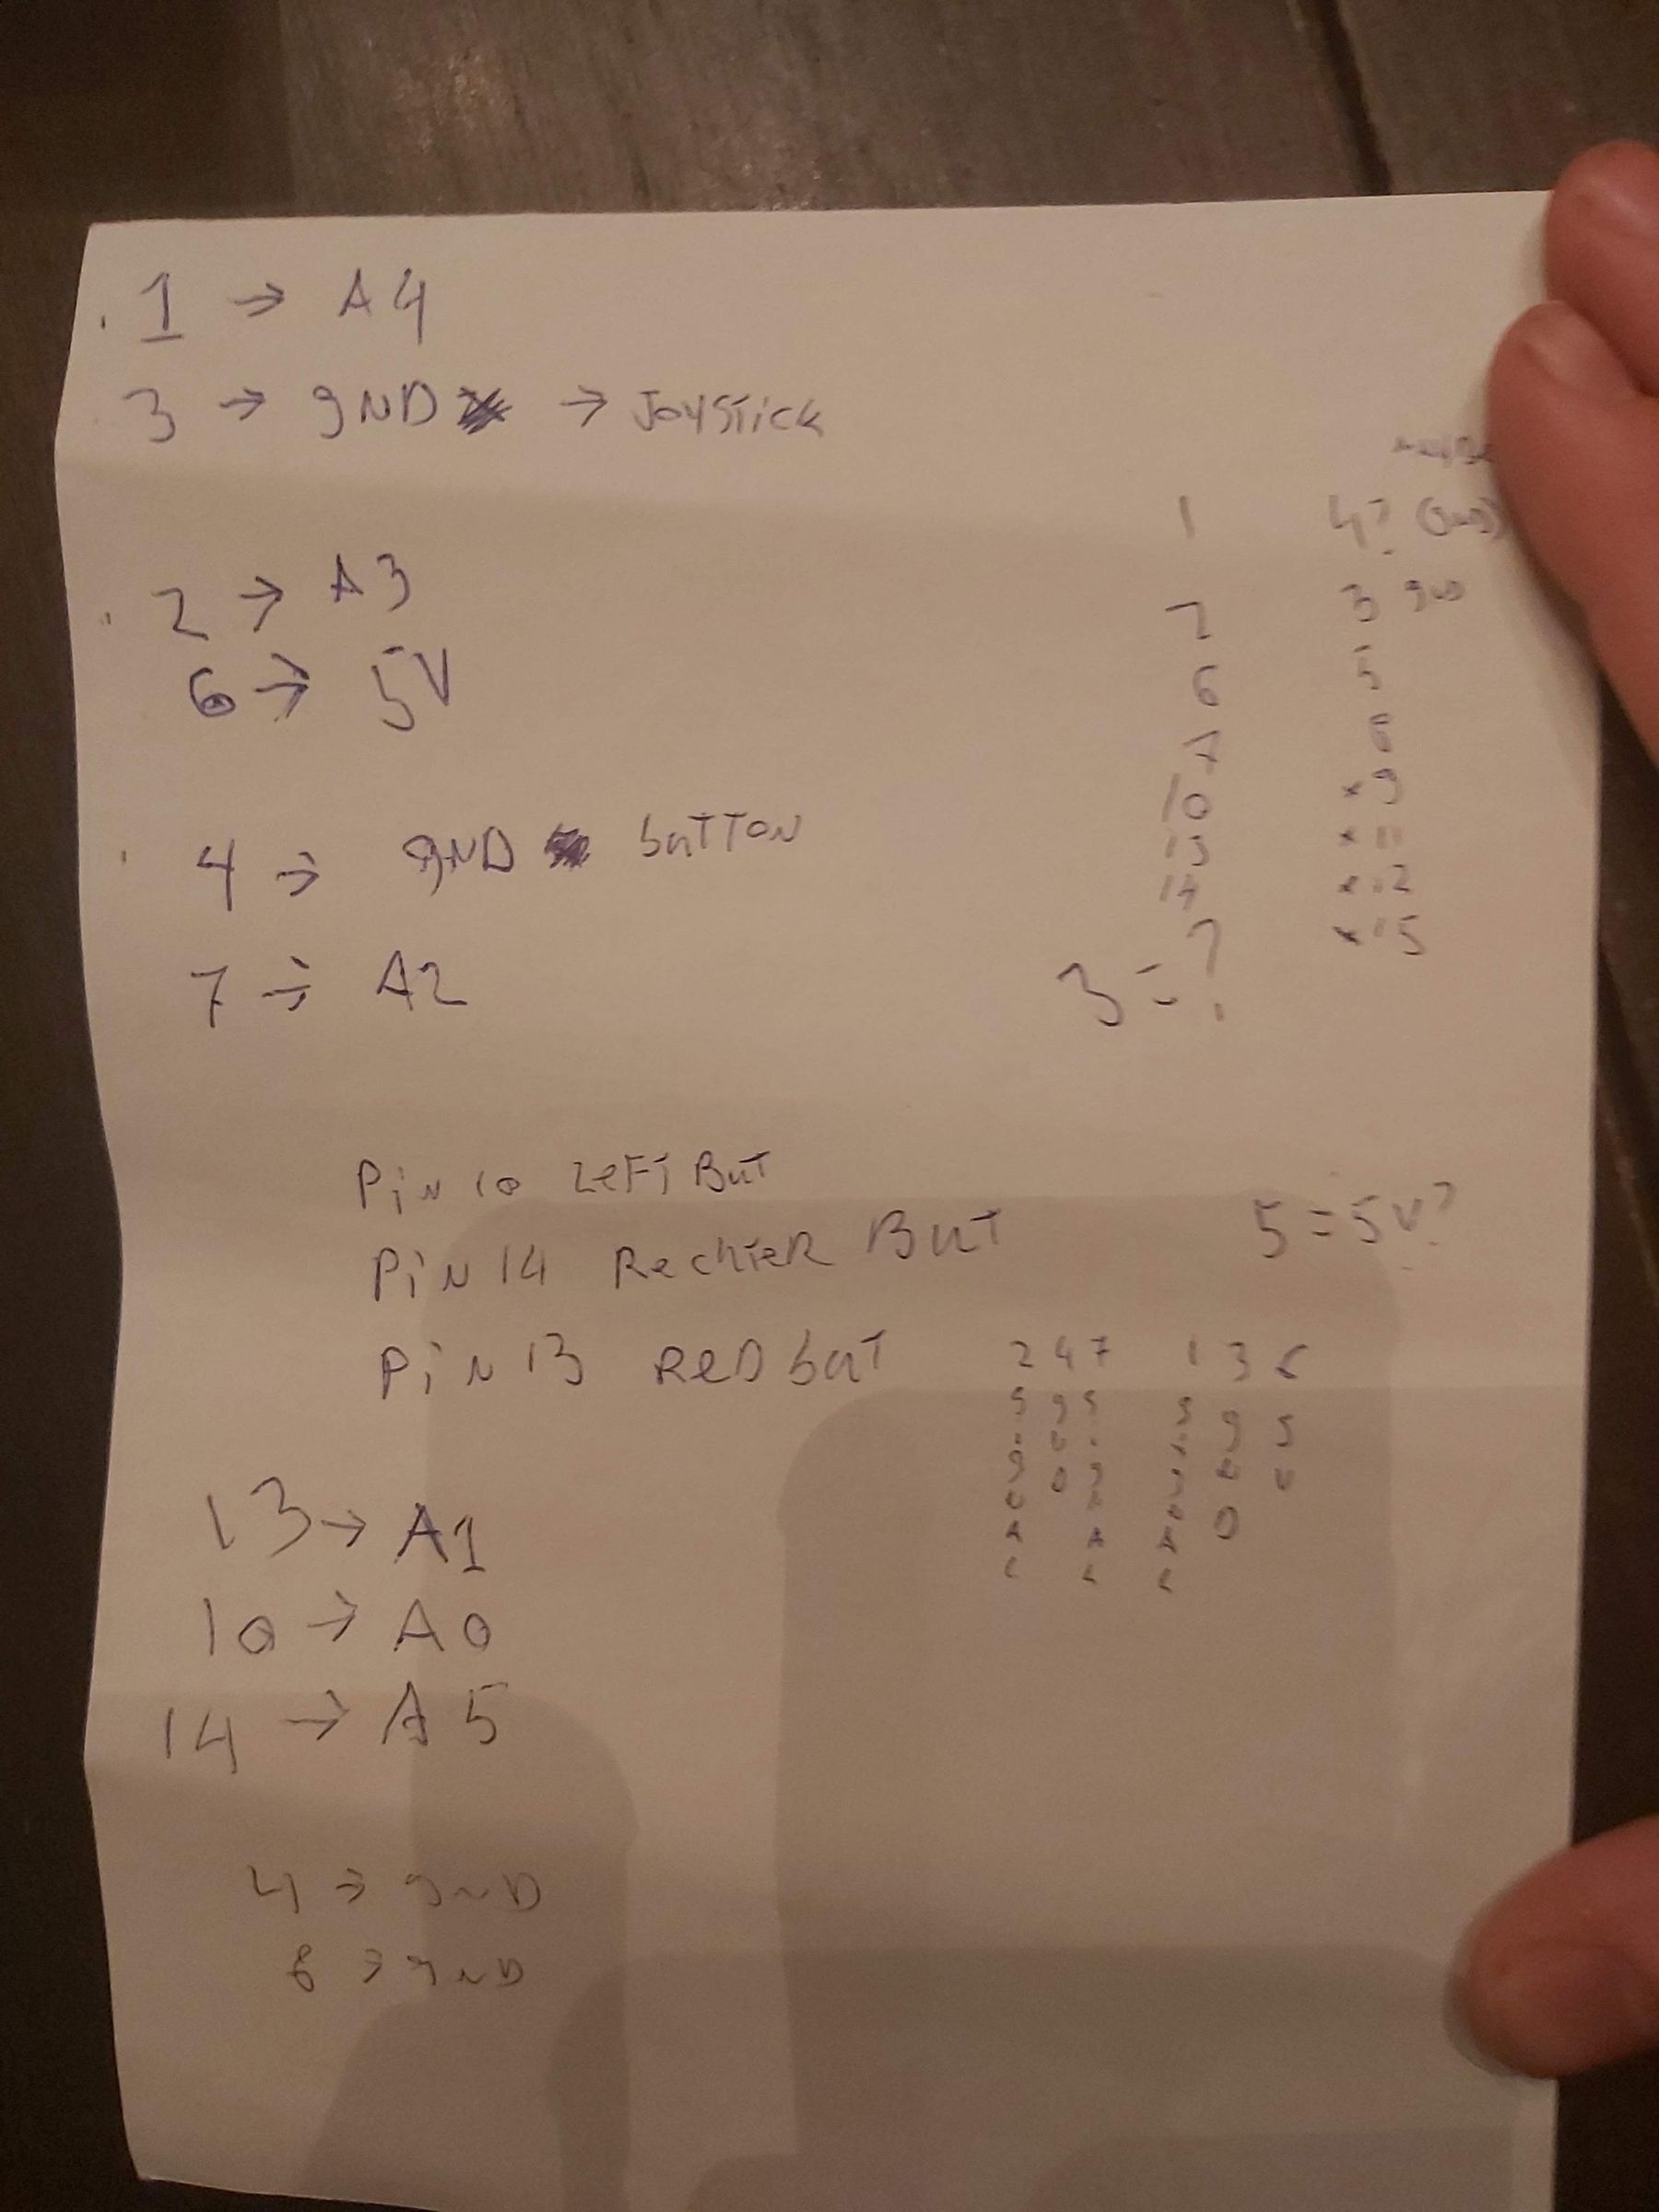 1 → A4
3 → gND → JoySTick
2 → A3
6 → 5V
4 → gND buTTON
7 → A2
1 4? (gnd)
2 3 gnd
6 5
7 8
10 × 9
13 × 11
14 × 12
× 15
3 = ?
PiN 10 LeFT BuT
PiN 14 RechTeR BuT
5 = 5V?
PiN 13 ReD buT
2 4 7 1 3 6
13 → A1
10 → A0
14 → A5
4 → gND
8 → gND